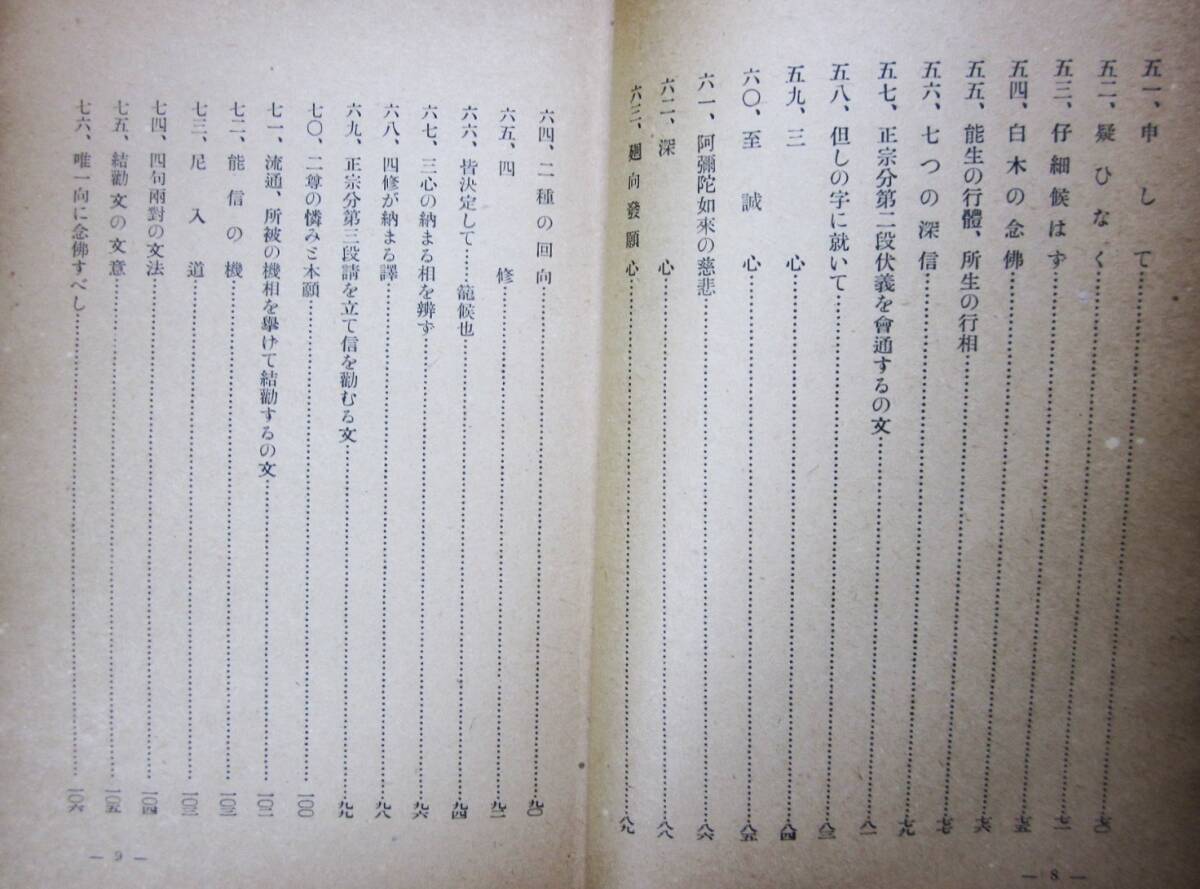 五一、申して……七〇
五二、疑ひなく……七〇
五三、仔細候はず……七一
五四、白木の念佛……七五
五五、能生の行體、所生の行相……七六
五六、七つの深信……七七
五七、正宗分第二段伏義を會通するの文……七九
五八、但しの字に就いて……八一
五九、三心……八三
六〇、至誠心……八四
六一、阿彌陀如來の慈悲……八五
六二、深心……八六
六三、廻向發願心……八八
八九
— 8 —
六四、二種の回向……九〇
六五、四修……九二
六六、皆決定して……籠候也……九四
六七、三心の納まる相を辨ず……九六
六八、四修が納まる譯……九八
六九、正宗分第三段請を立て信を勸むる文……九九
七〇、二尊の憐みと本願……一〇〇
七一、流通、所被の機相を擧けて結勸するの文……一〇二
七二、能信の機……一〇三
七三、尼入道……一〇三
七四、四句兩對の文法……一〇四
七五、結勸文の文意……一〇五
七六、唯一向に念佛すべし……一〇六
— 9 —